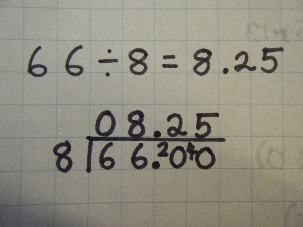 66÷8=8.25
08.25
8|66.²0⁴0